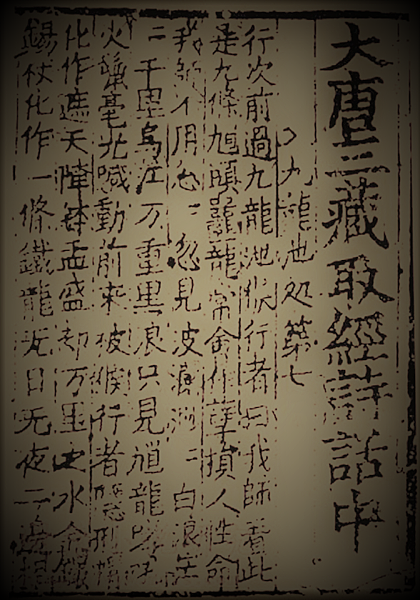 大唐三藏取經詩話中
入九龍池処第七
行次前過九龍池猴行者曰我師看此
是九條馗頭鼉龍常會作孽損人性命
我師不用忩〻忽見波瀾〻〻白浪茫
〻千里烏江万重黑浪只見馗龍哮吼
火鬣毫光喊動前來被猴行者隱形帽
化作遮天陣鉢盂盛却万里之水金鐶
錫杖化作一條鐵龍无日无夜二邊相